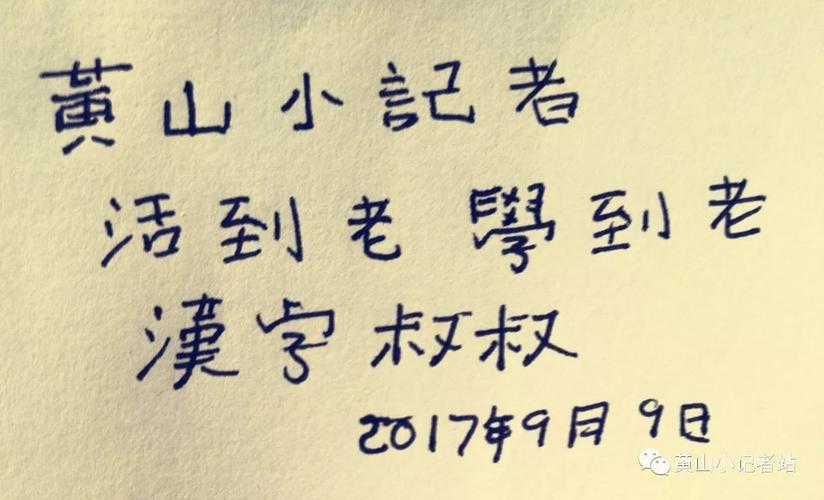 黃山小記者
活到老 學到老
漢字叔叔
2017年9月9日
黄山小记者站